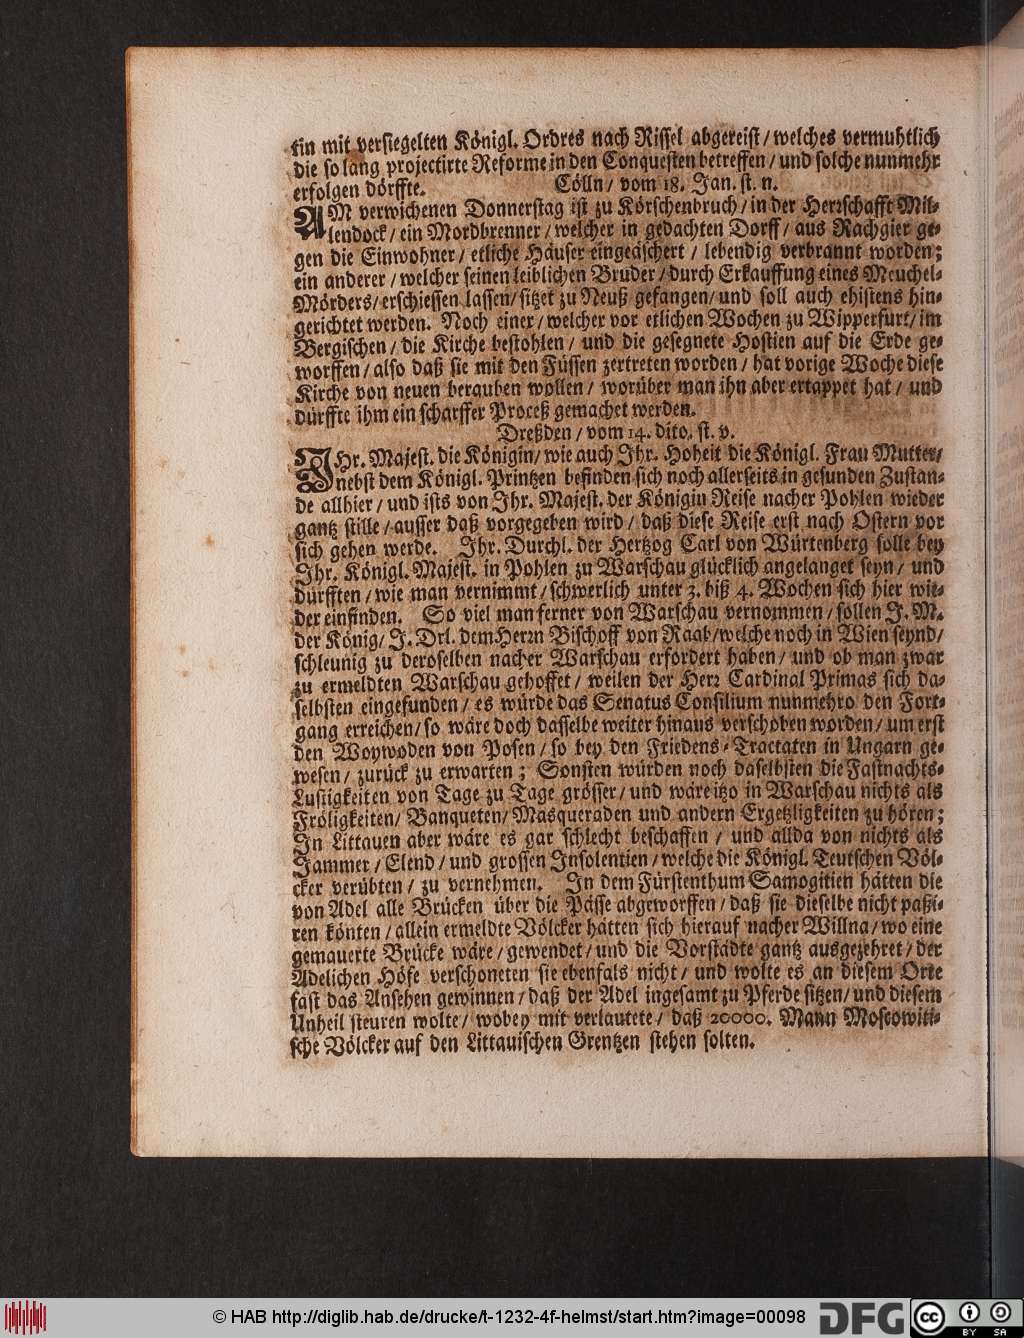 tin mit versiegelten Königl. Ordres nach Rissel abgereist / welches vermuhtlich
die so lang projectirte Reforme in den Conquesten betreffen / und solche nunmehr
erfolgen dörffte. Cölln / vom 18. Jan. st. n.
AM verwichenen Donnerstag ist zu Körschenbruch / in der Herrschafft Mil-
lendock / ein Mordbrenner / welcher in gedachten Dorff / aus Rachgier ge-
gen die Einwohner / etliche Häuser eingeäschert / lebendig verbrannt worden;
ein anderer / welcher seinen leiblichen Bruder / durch Erkauffung eines Meuchel-
Mörders / erschiessen lassen / sitzet zu Neuß gefangen / und soll auch ehistens hin-
gerichtet werden. Noch einer / welcher vor etlichen Wochen zu Wipperfurt / im
Bergischen / die Kirche bestohlen / und die gesegnete Hostien auf die Erde ge-
worffen / also daß sie mit den Füssen zertreten worden / hat vorige Woche diese
Kirche von neuen berauben wollen / worüber man ihn aber ertappet hat / und
dürffte ihm ein scharffer Proceß gemachet werden.
Dreßden / vom 14. dito, st. v.
IHr. Majest. die Königin / wie auch Ihr. Hoheit die Königl. Frau Mutter /
nebst dem Königl. Printzen befinden sich noch allerseits in gesunden Zustan-
de allhier / und ists von Ihr. Majest. der Königin Reise nacher Pohlen wieder
gantz stille / ausser daß vorgegeben wird / daß diese Reise erst nach Ostern vor
sich gehen werde. Ihr. Durchl. der Hertzog Carl von Würtenberg solle bey
Ihr. Königl. Majest. in Pohlen zu Warschau glücklich angelanget seyn / und
dürfften / wie man vernimmt / schwerlich unter 3. biß 4. Wochen sich hier wie-
der einfinden. So viel man ferner von Warschau vernommen / sollen J. M.
der König / J. Drl. dem Herrn Bischoff von Raab / welche noch in Wien seynd /
schleunig zu deroselben nacher Warschau erfordert haben / und ob man zwar
zu ermeldten Warschau gehoffet / weilen der Herr Cardinal Primas sich da-
selbsten eingefunden / es würde das Senatus Consilium nunmehro den Fort-
gang erreichen / so wäre doch dasselbe weiter hinaus verschoben worden / um erst
den Woywoden von Posen / so bey den Friedens-Tractaten in Ungarn ge-
wesen / zurück zu erwarten; Sonsten würden noch daselbsten die Fastnachts-
Lustigkeiten von Tage zu Tage grösser / und wäre itzo in Warschau nichts als
Fröligkeiten / Banqueten / Masqueraden und andern Ergetzligkeiten zu hören;
In Littauen aber wäre es gar schlecht beschaffen / und allda von nichts als
Jammer / Elend / und grossen Insolentien / welche die Königl. Teutschen Völ-
cker verübten / zu vernehmen. In dem Fürstenthum Samogitien hätten die
von Adel alle Brücken über die Pässe abgeworffen / daß sie dieselbe nicht paßi-
ren könten / allein ermeldte Völcker hätten sich hierauf nacher Willna / wo eine
gemauerte Brücke wäre / gewendet / und die Vorstädte gantz ausgezehret / der
Adelichen Höfe verschoneten sie ebenfals nicht / und wolte es an diesem Orte
fast das Ansehen gewinnen / daß der Adel ingesamt zu Pferde sitzen / und diesem
Unheil steuren wolte / wobey mit verlautete / daß 20000. Mann Moscowiti-
sche Völcker auf den Littauischen Grentzen stehen solten.
© HAB http://diglib.hab.de/drucke/t-1232-4f-helmst/start.htm?image=00098 DFG cc BY SA